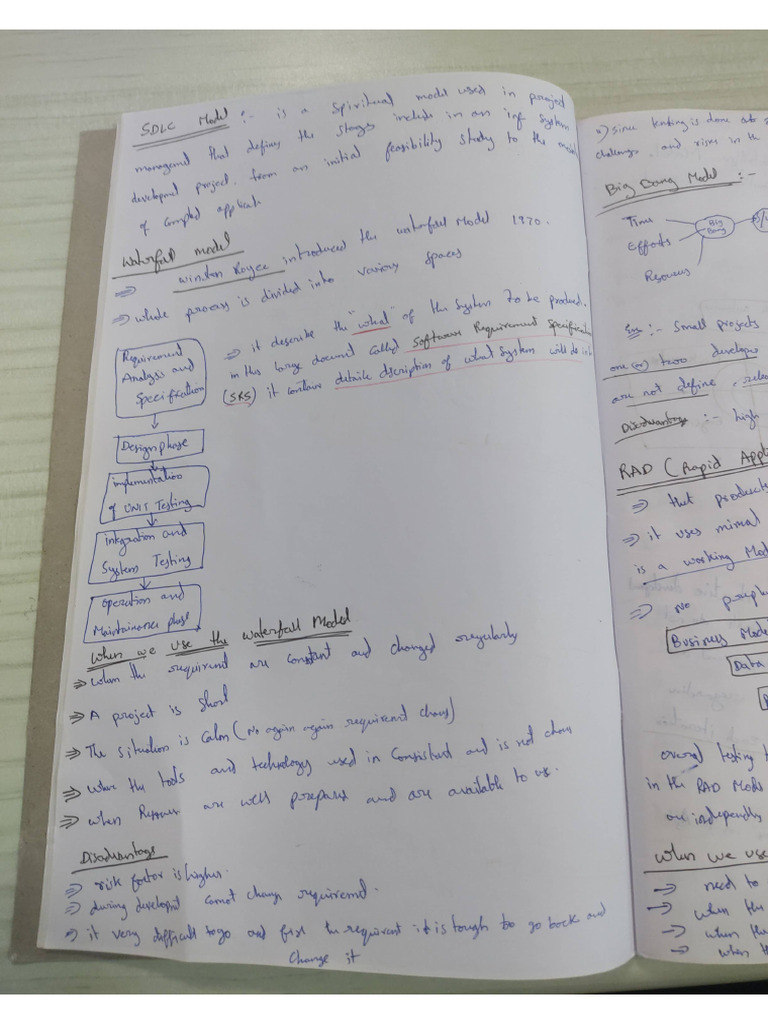 SDLC Model :- is a Spiritual model used in project
managemet that defines the stages include in an inf System
developmet project, from an initial feasibility study to the
of completed applicat.
Waterfall model
⇒ winston Royce introduced the waterfall Model 1970.
⇒ whole process is divided into various spaces
Requirement
Analysis and
Specification
⇒ it describe the "what" of the System to be produced.
in this large document called Software Requirement Specification
(SRS) it contains detaile discription of what System will do
Design phase
implementation
& UNIT Testing
integration and
System Testing
operation and
Maintainance phase
When we use the waterfall Model
⇒ when the requirement are constant and changed regularly
⇒ A project is short
⇒ The situation is calm (No again again requiremt
⇒ when the tools and technology used in consistant and is not
⇒ when are well and are available to us.
Disadvantages
⇒ risk factor is higher.
⇒ during developmt cannot change requiremt.
⇒ it very difficult to go and the it is tough to go back and
change it
since testing is done at
challenges, and risks in the
Big Bang Model :-
Time
Efforts
Resources
Big
Bang
:- Small projects
one (or) two develope
are not define,
Disadvantage :- high
RAD (Rapid Appli
⇒ that products
⇒ it uses
is a working Mod
⇒ No
Business Mode
Data
overal testing t
in the RAD Mode
are independly
when we use
→ need to
→ when the
→ when the
→ when th